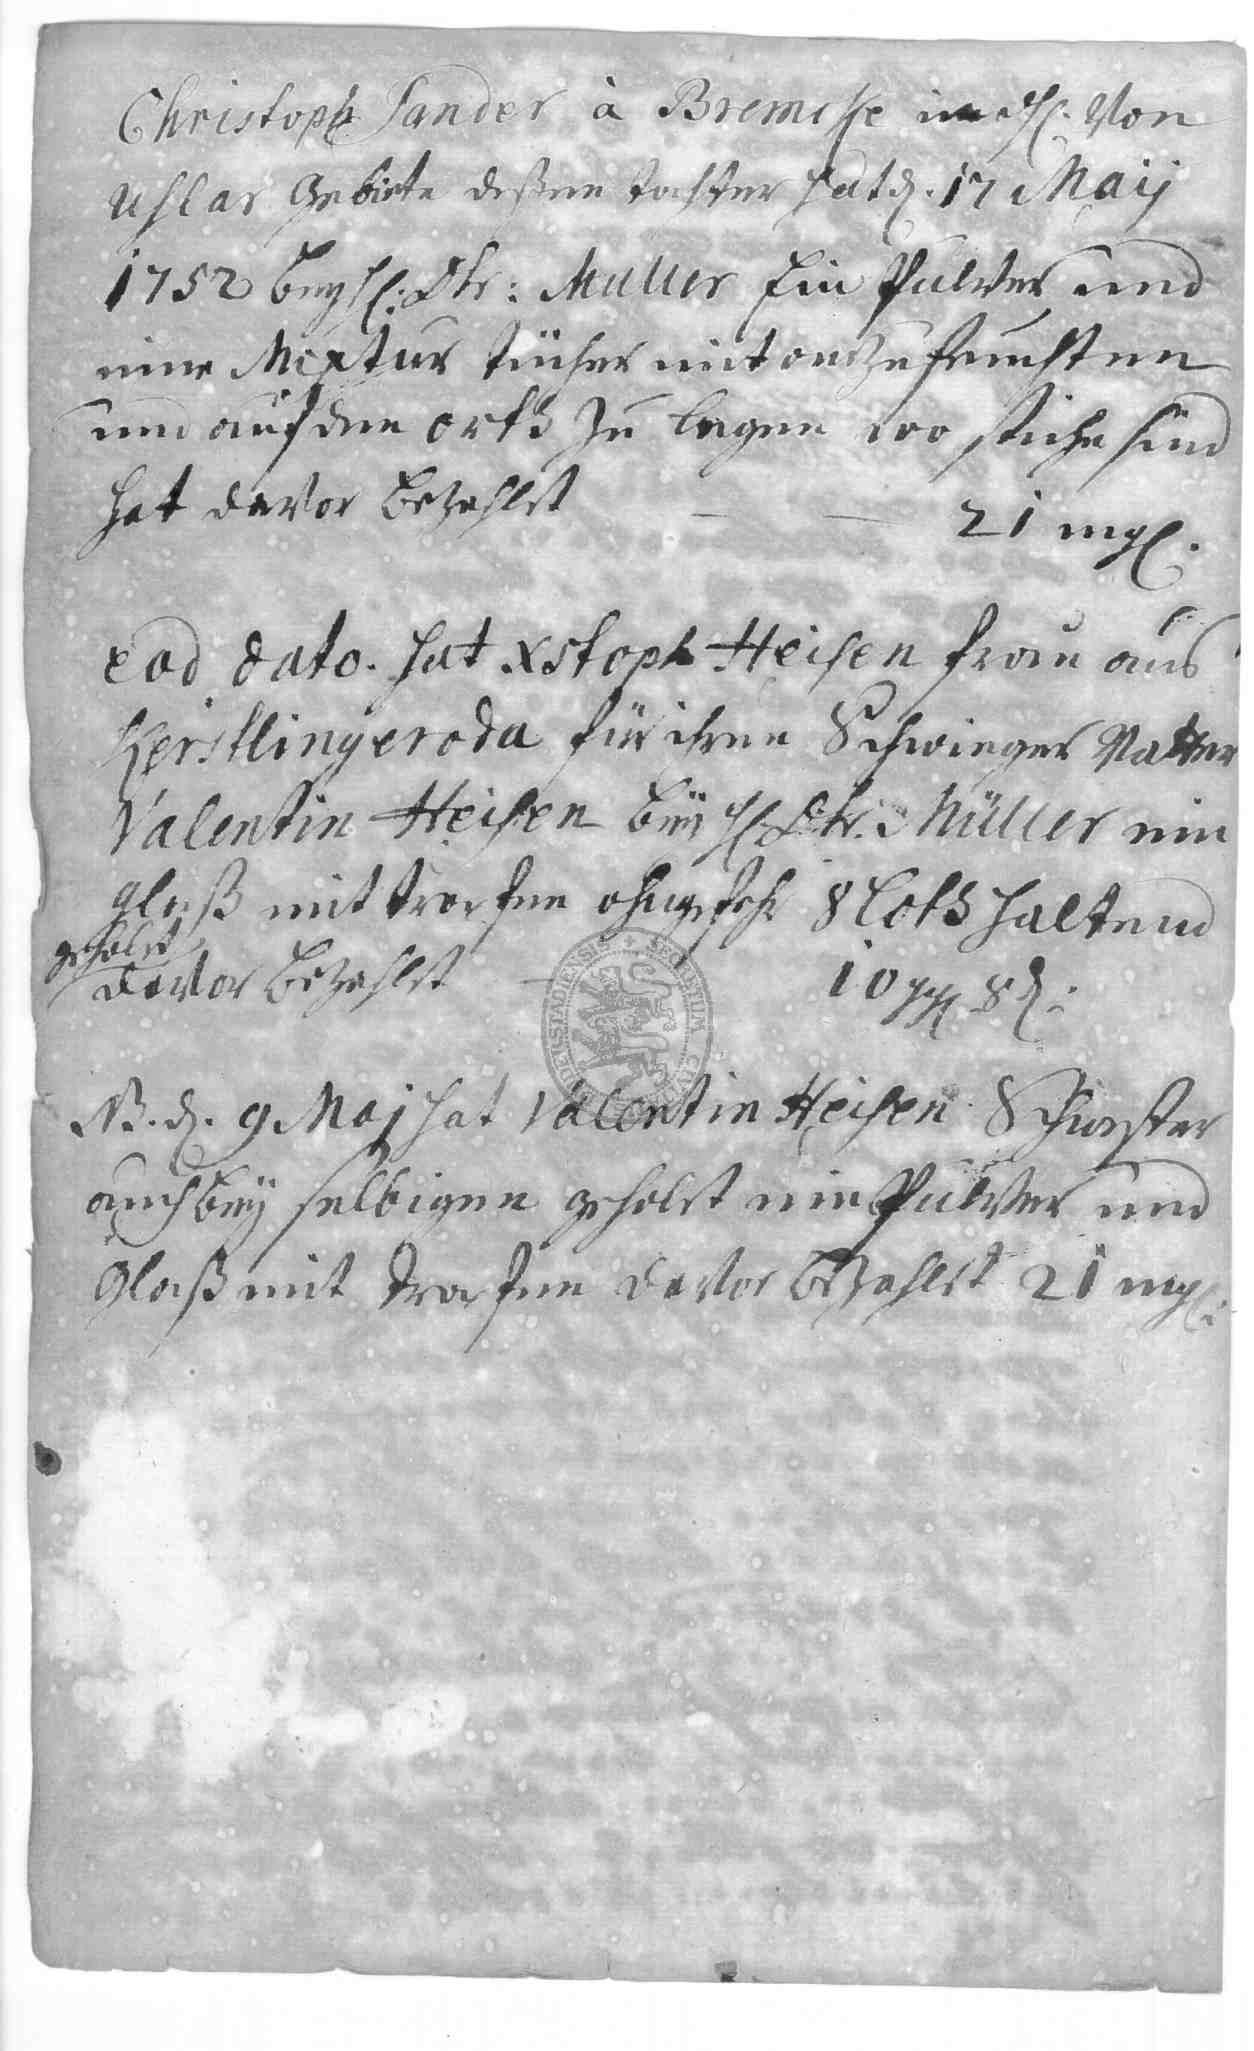 Christoph Sander à Bremcke im H. Von
Uslar Gebiete deßen tochter hat d. 17 Maij
1752 bey H. Dtr: Muller Ein Pulver und
eine Mixtur tücher mit anzufeuchten
und auf den orth zu legen wo stiche sind
hat davor bezahlt 21 mgl.
eod dato. hat Xstoph Heisen frau aus
Kerstlingeroda für ihren Schwieger Vatter
Valentin Heisen bey H. Dtr. Müller ein
glaß mit tropfen ohngefehr 8 loth haltend
geholt
davor bezahlt 10 8 d:
NB. d. 9 Maj hat Valentin Heisen Schwester
auch bey selbigen geholt ein Pulver und
Glaß mit tropfen davor bezahlt 21 mgl: